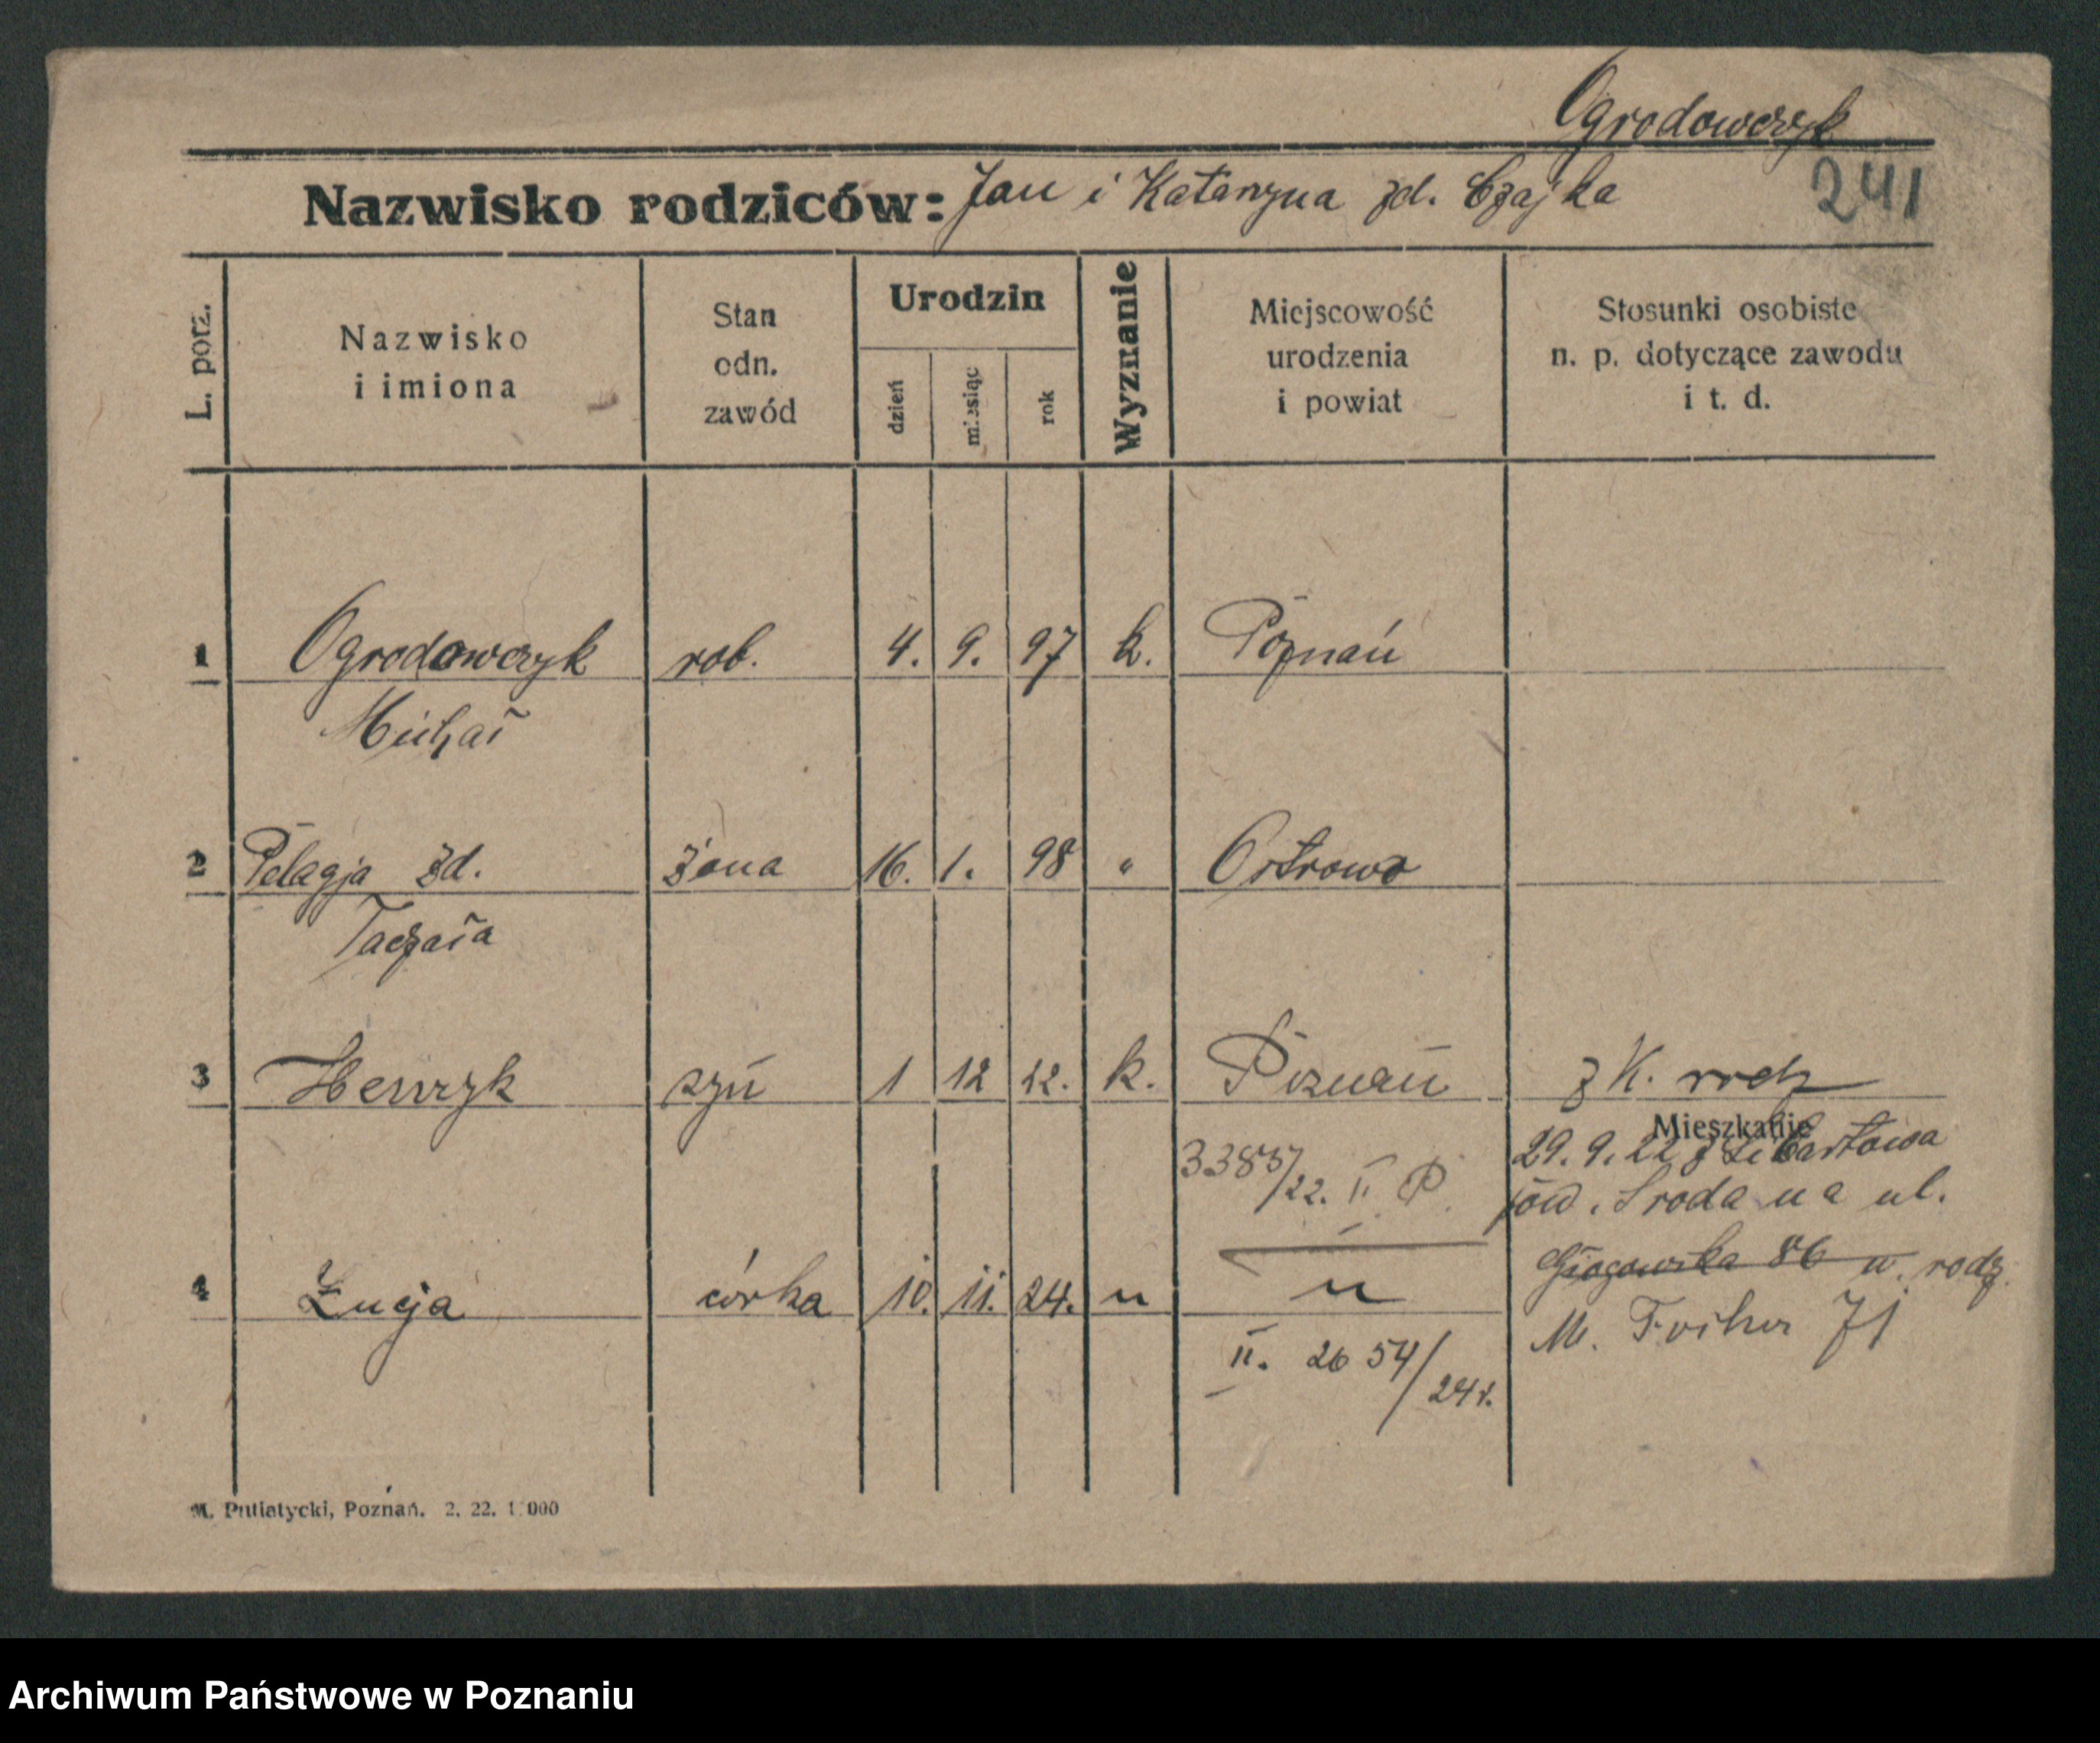 Ogrodowczyk
Nazwisko rodziców: Jan i Katarzyna zd. Czajka
241
L. porz.
Nazwisko
i imiona
Stan
odn.
zawód
Urodzin
dzień
miesiąc
rok
Wyznanie
Miejscowość
urodzenia
i powiat
Stosunki osobiste
n. p. dotyczące zawodu
i t. d.
1 Ogrodowczyk rob. 4. 9. 97 k. Poznań
Michał
2 Pelagja zd. żona 16. 1. 98 " Ostrowo
Taczała
3 Henryk syn 1 12 22. k. Poznań z K. rodz
Mieszkanie
3383/22. II P.
29. 9. 22 z Libartowa
pow. Środa na ul.
Głogowska 86 u. rodz.
4 Łucja córka 10. 11. 24. " "
M. Focha 71
II. 2654/24 r.
M. Putiatycki, Poznań. 2. 22. 1 000
Archiwum Państwowe w Poznaniu